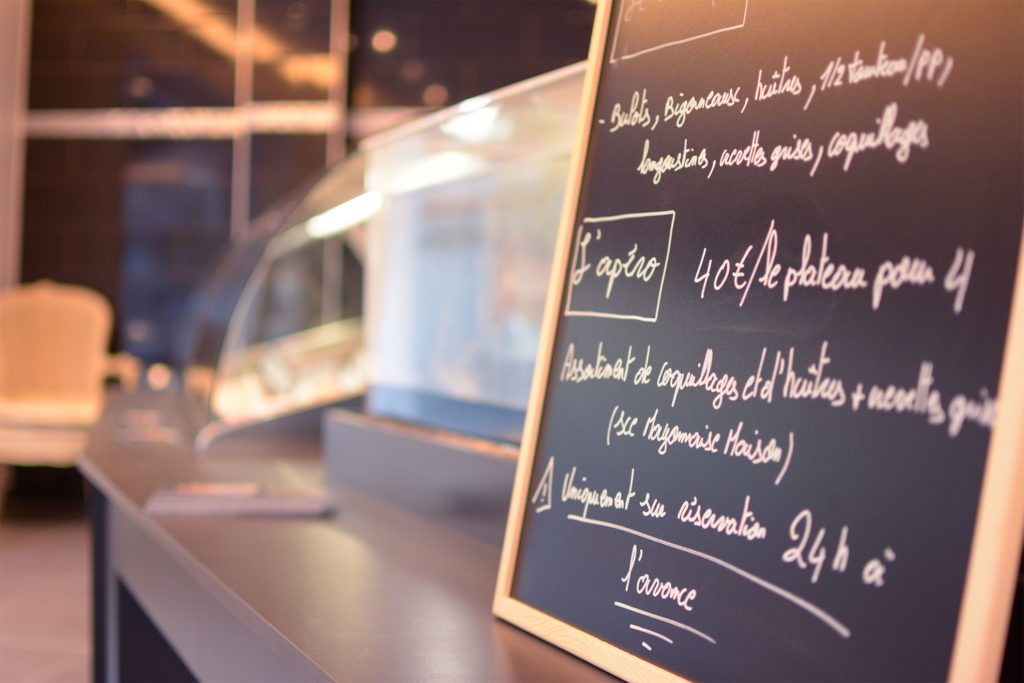 - Bulots, Bigorneaux, huîtres, 1/2 tourteau/pp,
langoustines, crevettes grises, coquillages
L'apéro 40€/le plateau pour 4
Assortiment de coquillages et d'huîtres + crevettes grises
(sce Mayonnaise Maison)
⚠ Uniquement sur réservation 24h à
l'avance